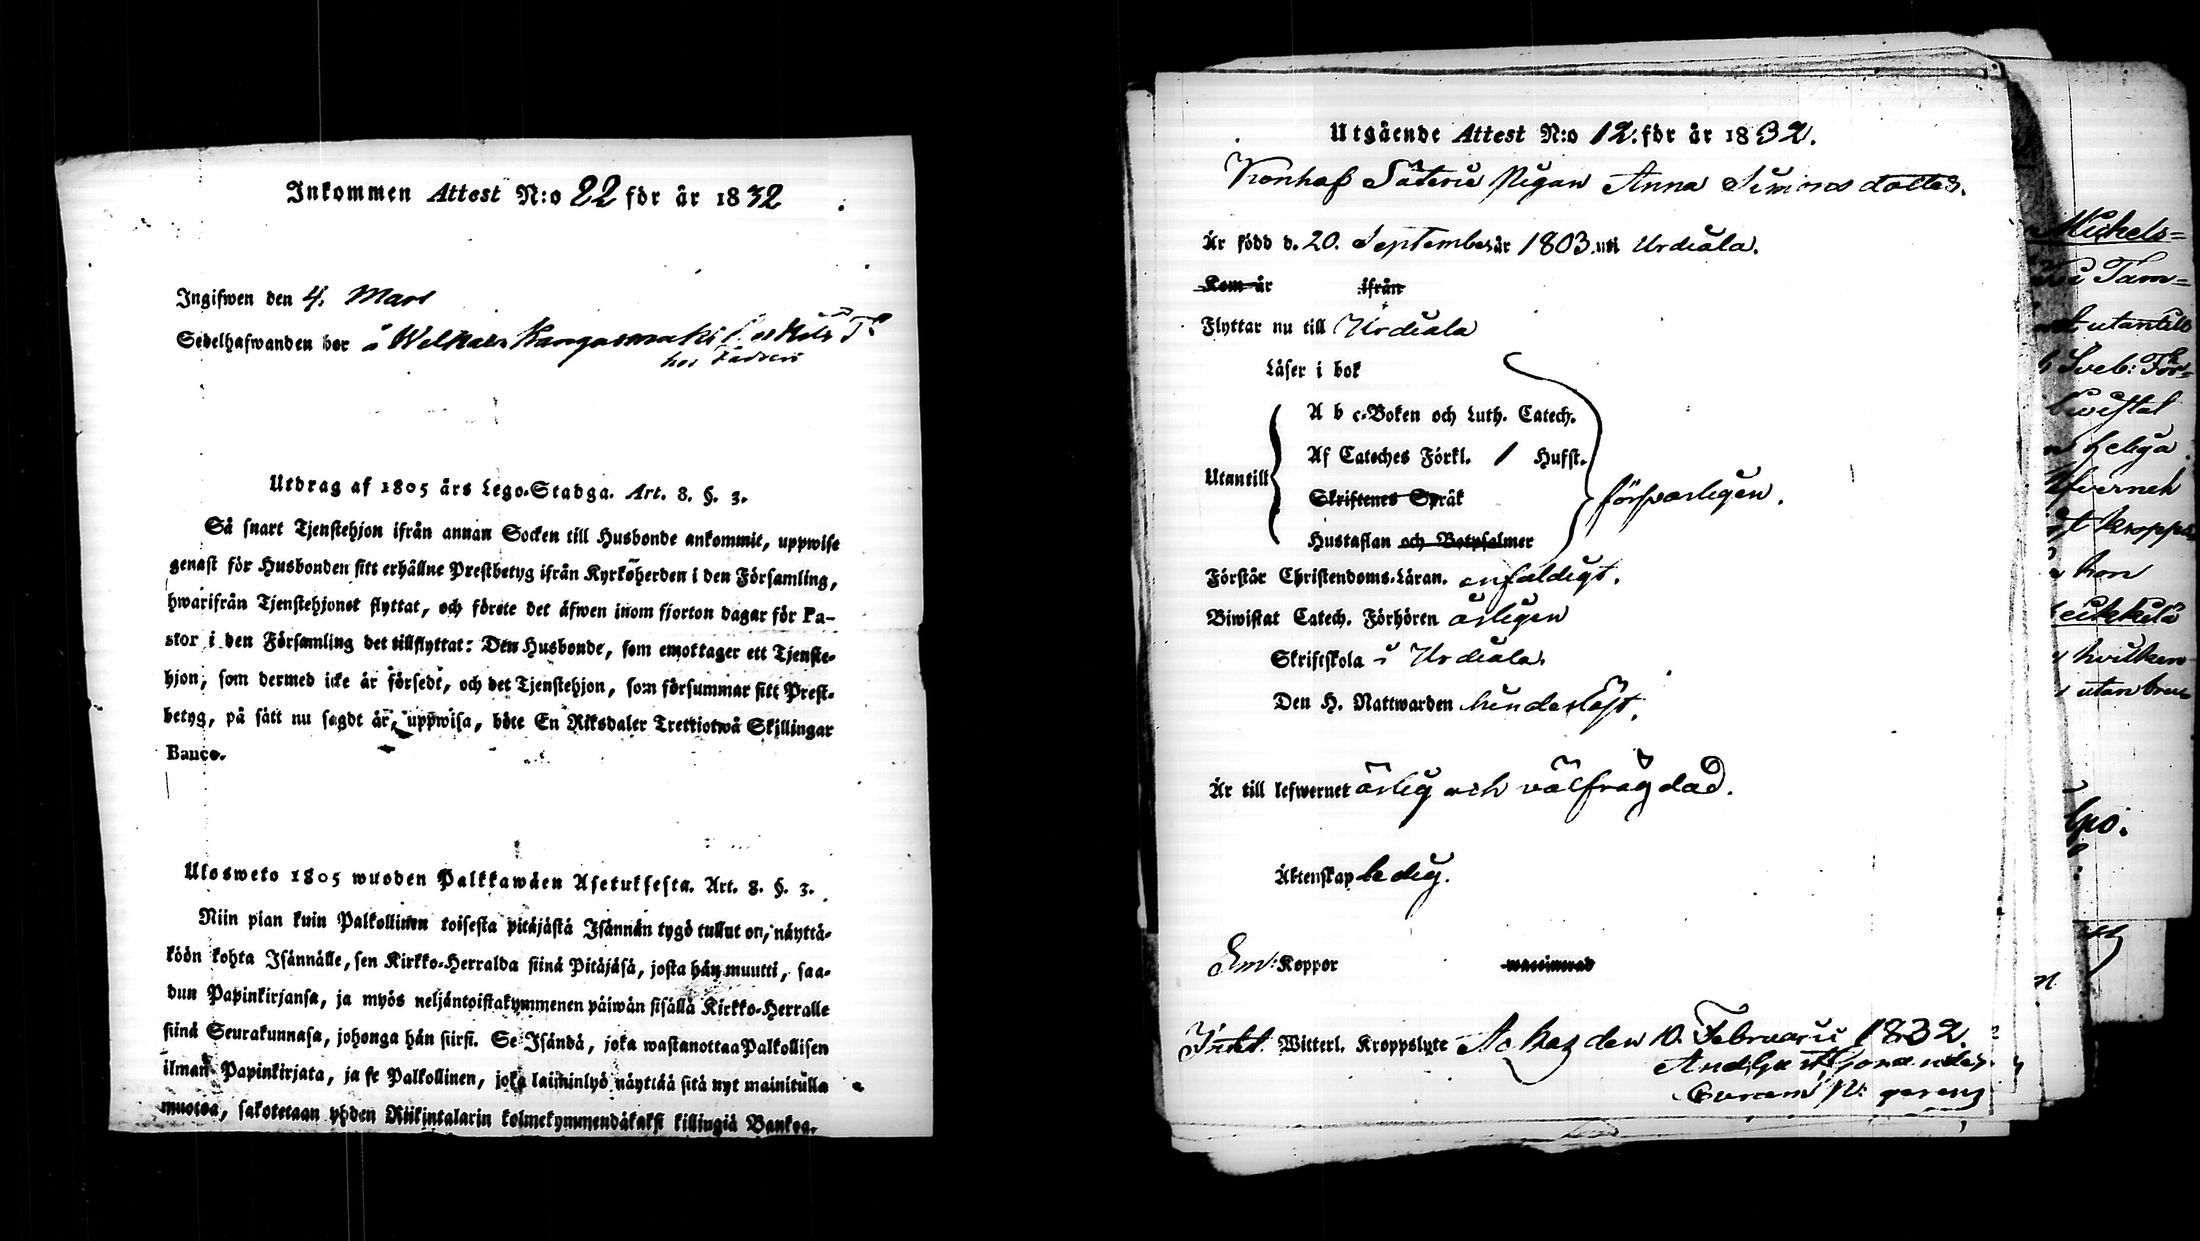 Inkommen Attest N:o 22 för år 1832
Ingifwen den 4. Mars
Sedelhafwanden bor å
hos Fadren
Utdrag af 1805 års Lego-Stadga. Art. 8. §. 3.
Så snart Tjenstehjon ifrån annan Socken till Husbonde ankommit, uppwise
genast för Husbonden sitt erhållne Prestbetyg ifrån Kyrkoherden i den Församling,
hwarifrån Tjenstehjonet flyttat, och förete det äfwen inom fjorton dagar för Pa-
stor i den Församling det tillflyttat: Den Husbonde, som emottager ett Tjenste-
hjon, som dermed icke är försedt, och det Tjenstehjon, som försummar sitt Prest-
betyg, på sätt nu sagdt är, uppwisa, böte En Riksdaler Trettiotwå Skillingar
Banco.
Utosweto 1805 wuoden Palkkawäen Asetuksesta. Art. 8. §. 3.
Niin pian kuin Palkollinen toisesta pitäjästä Isännän tygö tullut on, näyttä-
köön kohta Isännälle, sen Kirkko-Herralda siinä Pitäjäsä, josta hän muutti, saa-
dun Papinkirjansa, ja myös neljäntoistakymmenen päiwän sisällä Kirkko-Herralle
siinä Seurakunnasa, johonga hän siirsi. Se Isändä, joka wastanottaa Palkollisen
ilman Papinkirjata, ja se Palkollinen, joka laiminlyö näyttää sitä nyt mainitulla
muotoa, sakotetaan yhden Riikintalarin kolmekymmendäkaksi killingiä Bankoa.
Utgående Attest N:o 12. för år 1832.
Säterie Pigan Anna Simonsdotter.
Är född d. 20. September år 1803. uti Urdiala.
Kom år ifrån
Flyttar nu till Urdiala
Läser i bok
A b c-Boken och Luth. Catech.
Af Cateches Förkl. 1 Hufst.
Utantill
Skriftenes Språk
försvarligen.
Hustaflan och Botpsalmer
Förstår Christendoms-Läran. enfaldigt.
Biwistat Catech. Förhören årligen
Skriftskola i Urdiala.
Den H. Nattwarden hinderslöst.
Är till lefwernet ärlig och välfrägdad.
Äktenskap ledig.
Koppor waccinerad
Witterl. Kroppslyte den 10. Februarii 1832.
gerens
Michels=
i Tam=
utantill
Sveb: För=
helig
kropps
hon
hvilken